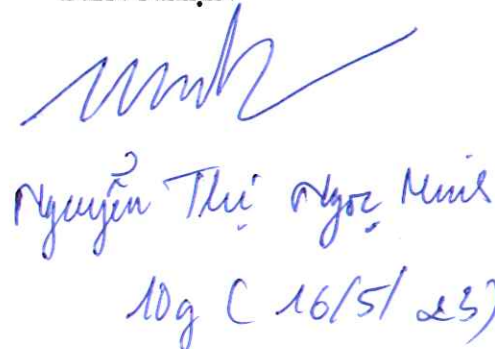 Nguyễn Thị Ngọc Minh
10g ( 16/5/23)